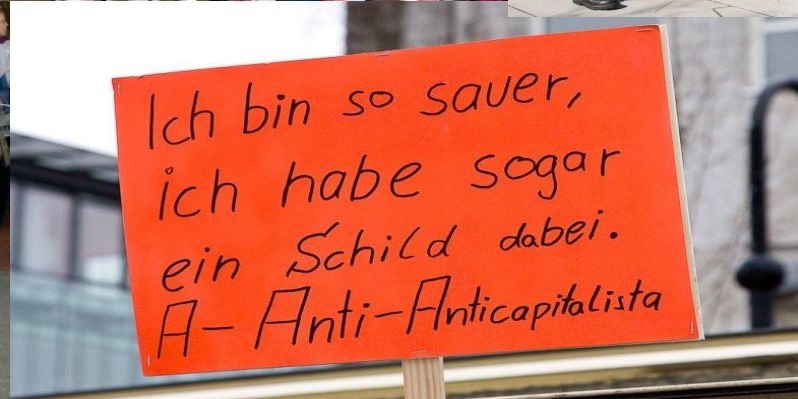 Ich bin so sauer,
ich habe sogar
ein Schild dabei.
A-Anti-Anticapitalista